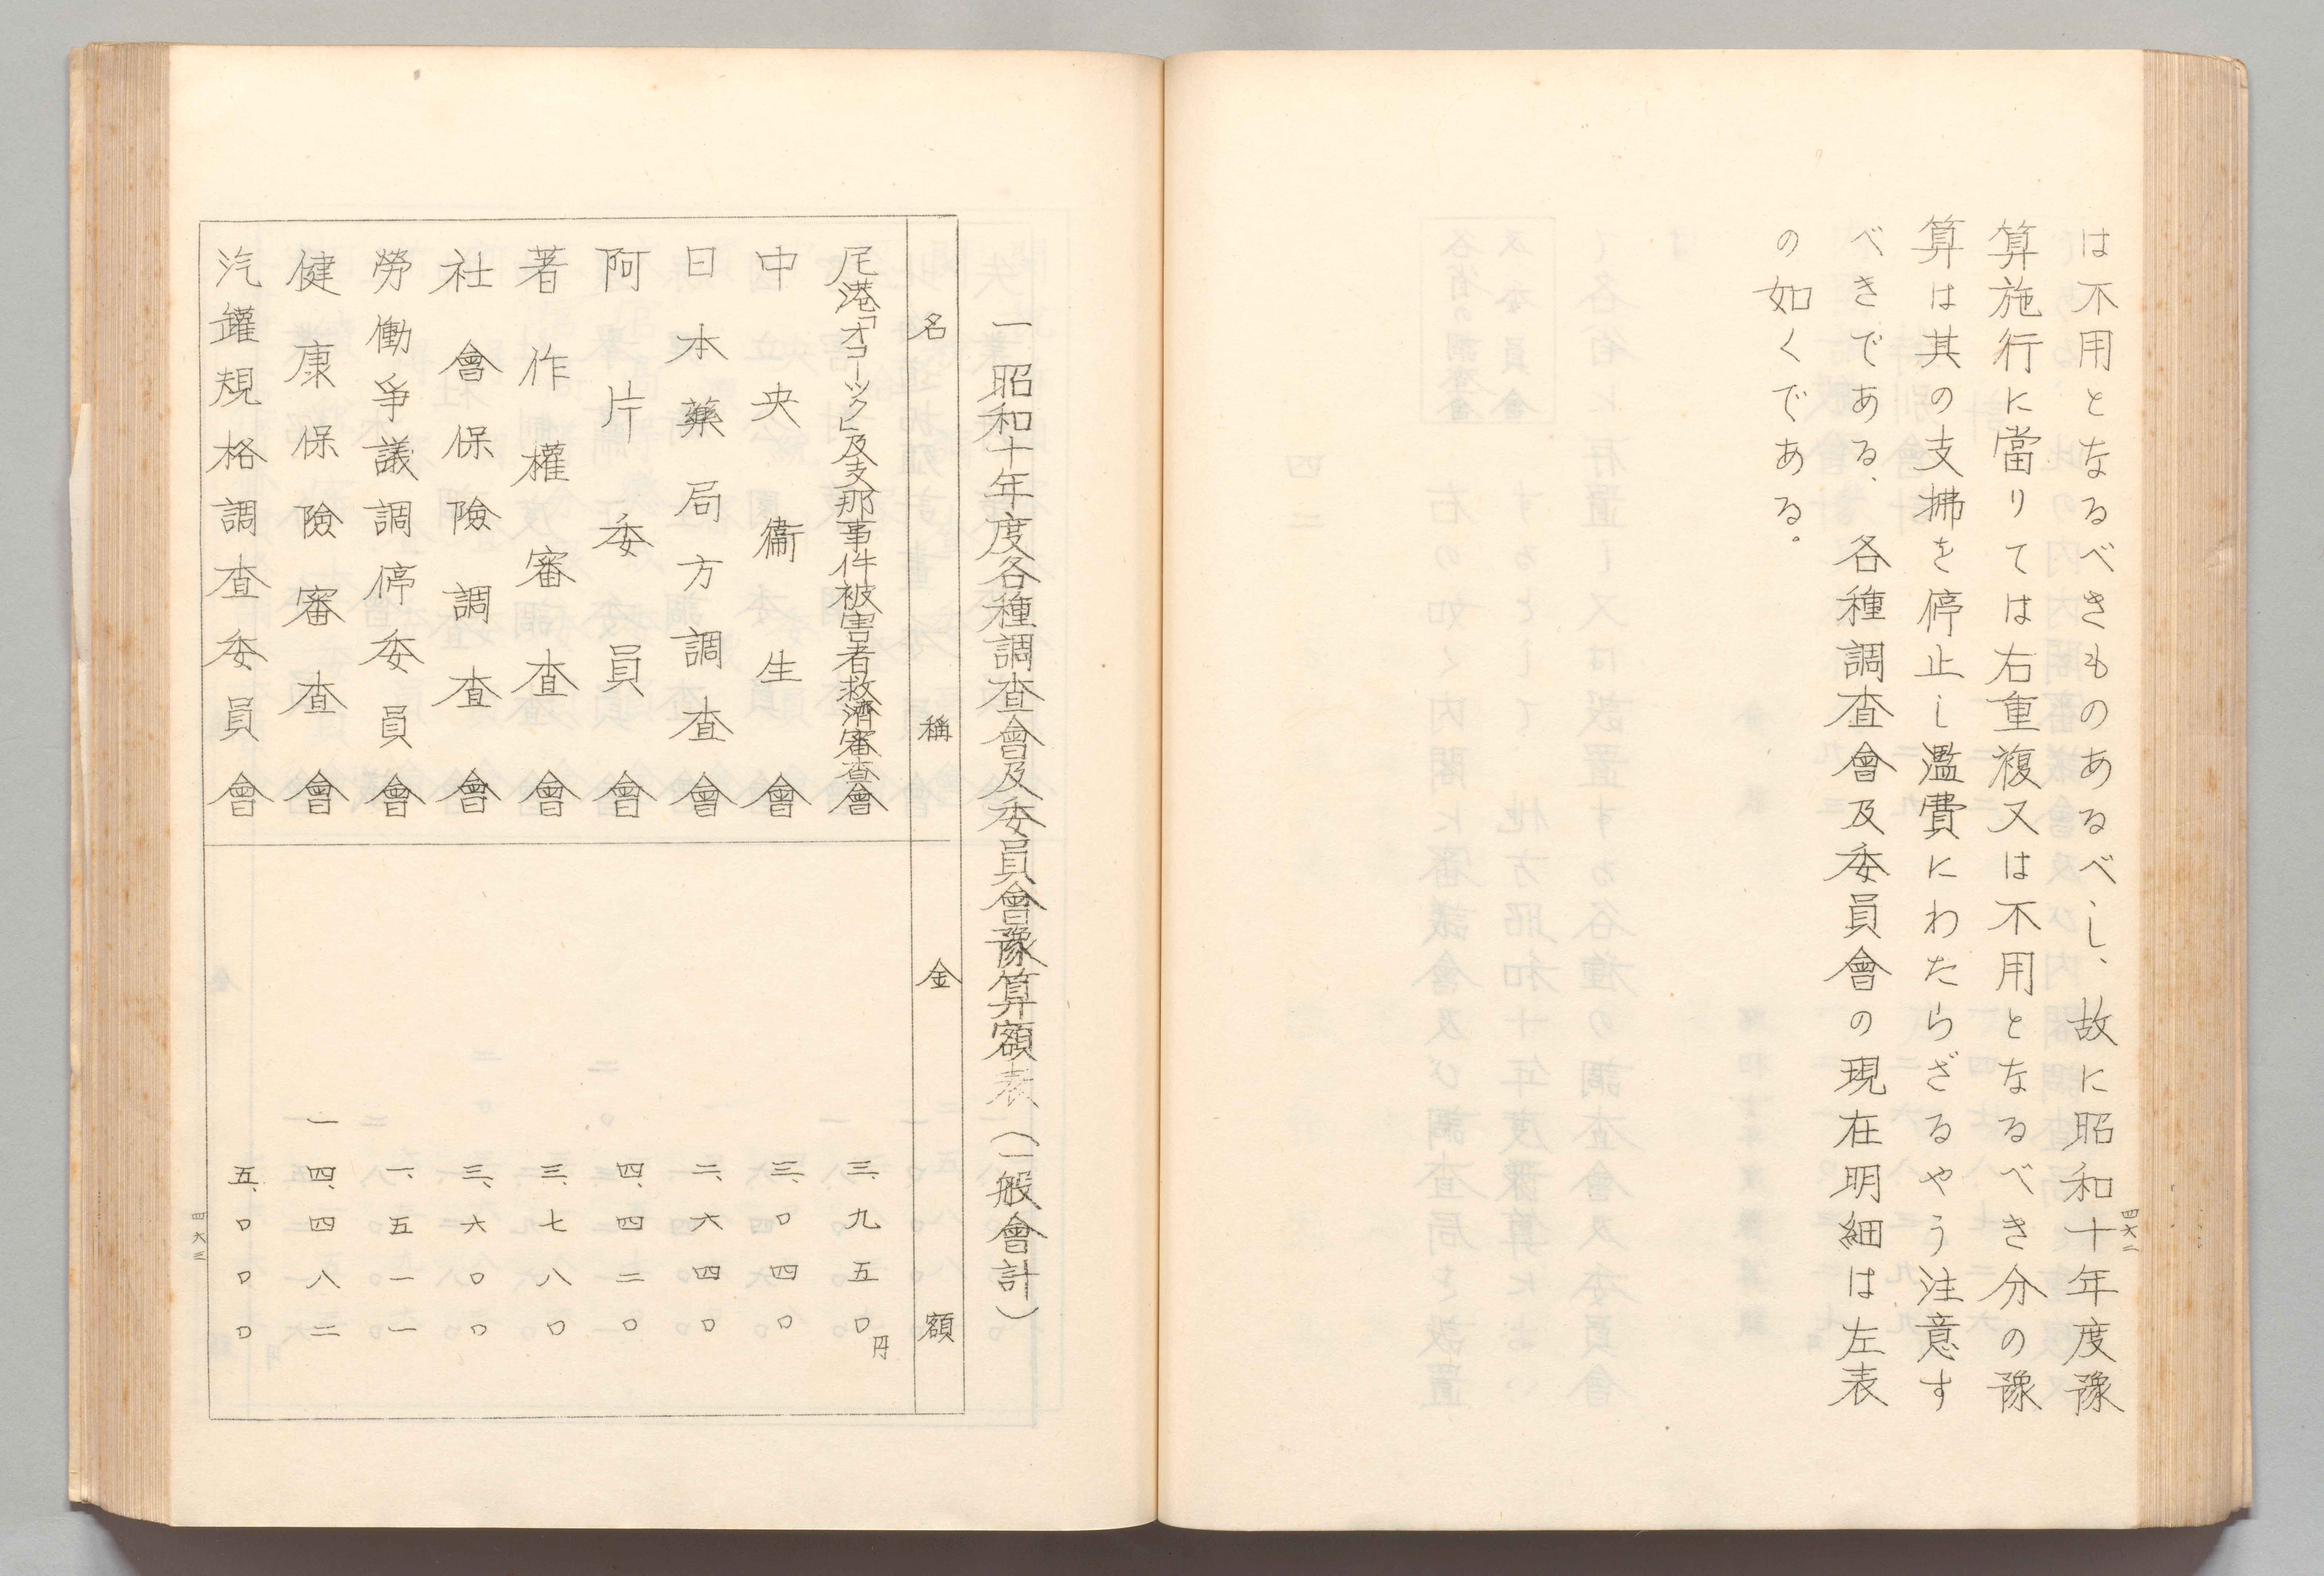 は不用となるべきものあるべし、故に昭和十年度豫
算施行に當りては右重複又は不用となるべき分の豫
算は其の支拂を停止し濫費にわたらざるやう注意す
べきである、各種調査會及委員會の現在明細は左表
の如くである。
四六二
一昭和十年度各種調査會及委員會豫算額表（一般會計）
名稱 金額
尼港「オコーツク」及支那事件被害者救濟審査會 三、九五〇円
中央衞生會 三、〇四〇
日本藥局方調査會 二、六四〇
阿片委員會 四、四二〇
著作權審査會 三、七八〇
社會保險調査會 三、六〇〇
勞働爭議調停委員會 一、五一一
健康保險審査會 一四、四八二
汽罐規格調査委員會 五、〇〇〇
四六三